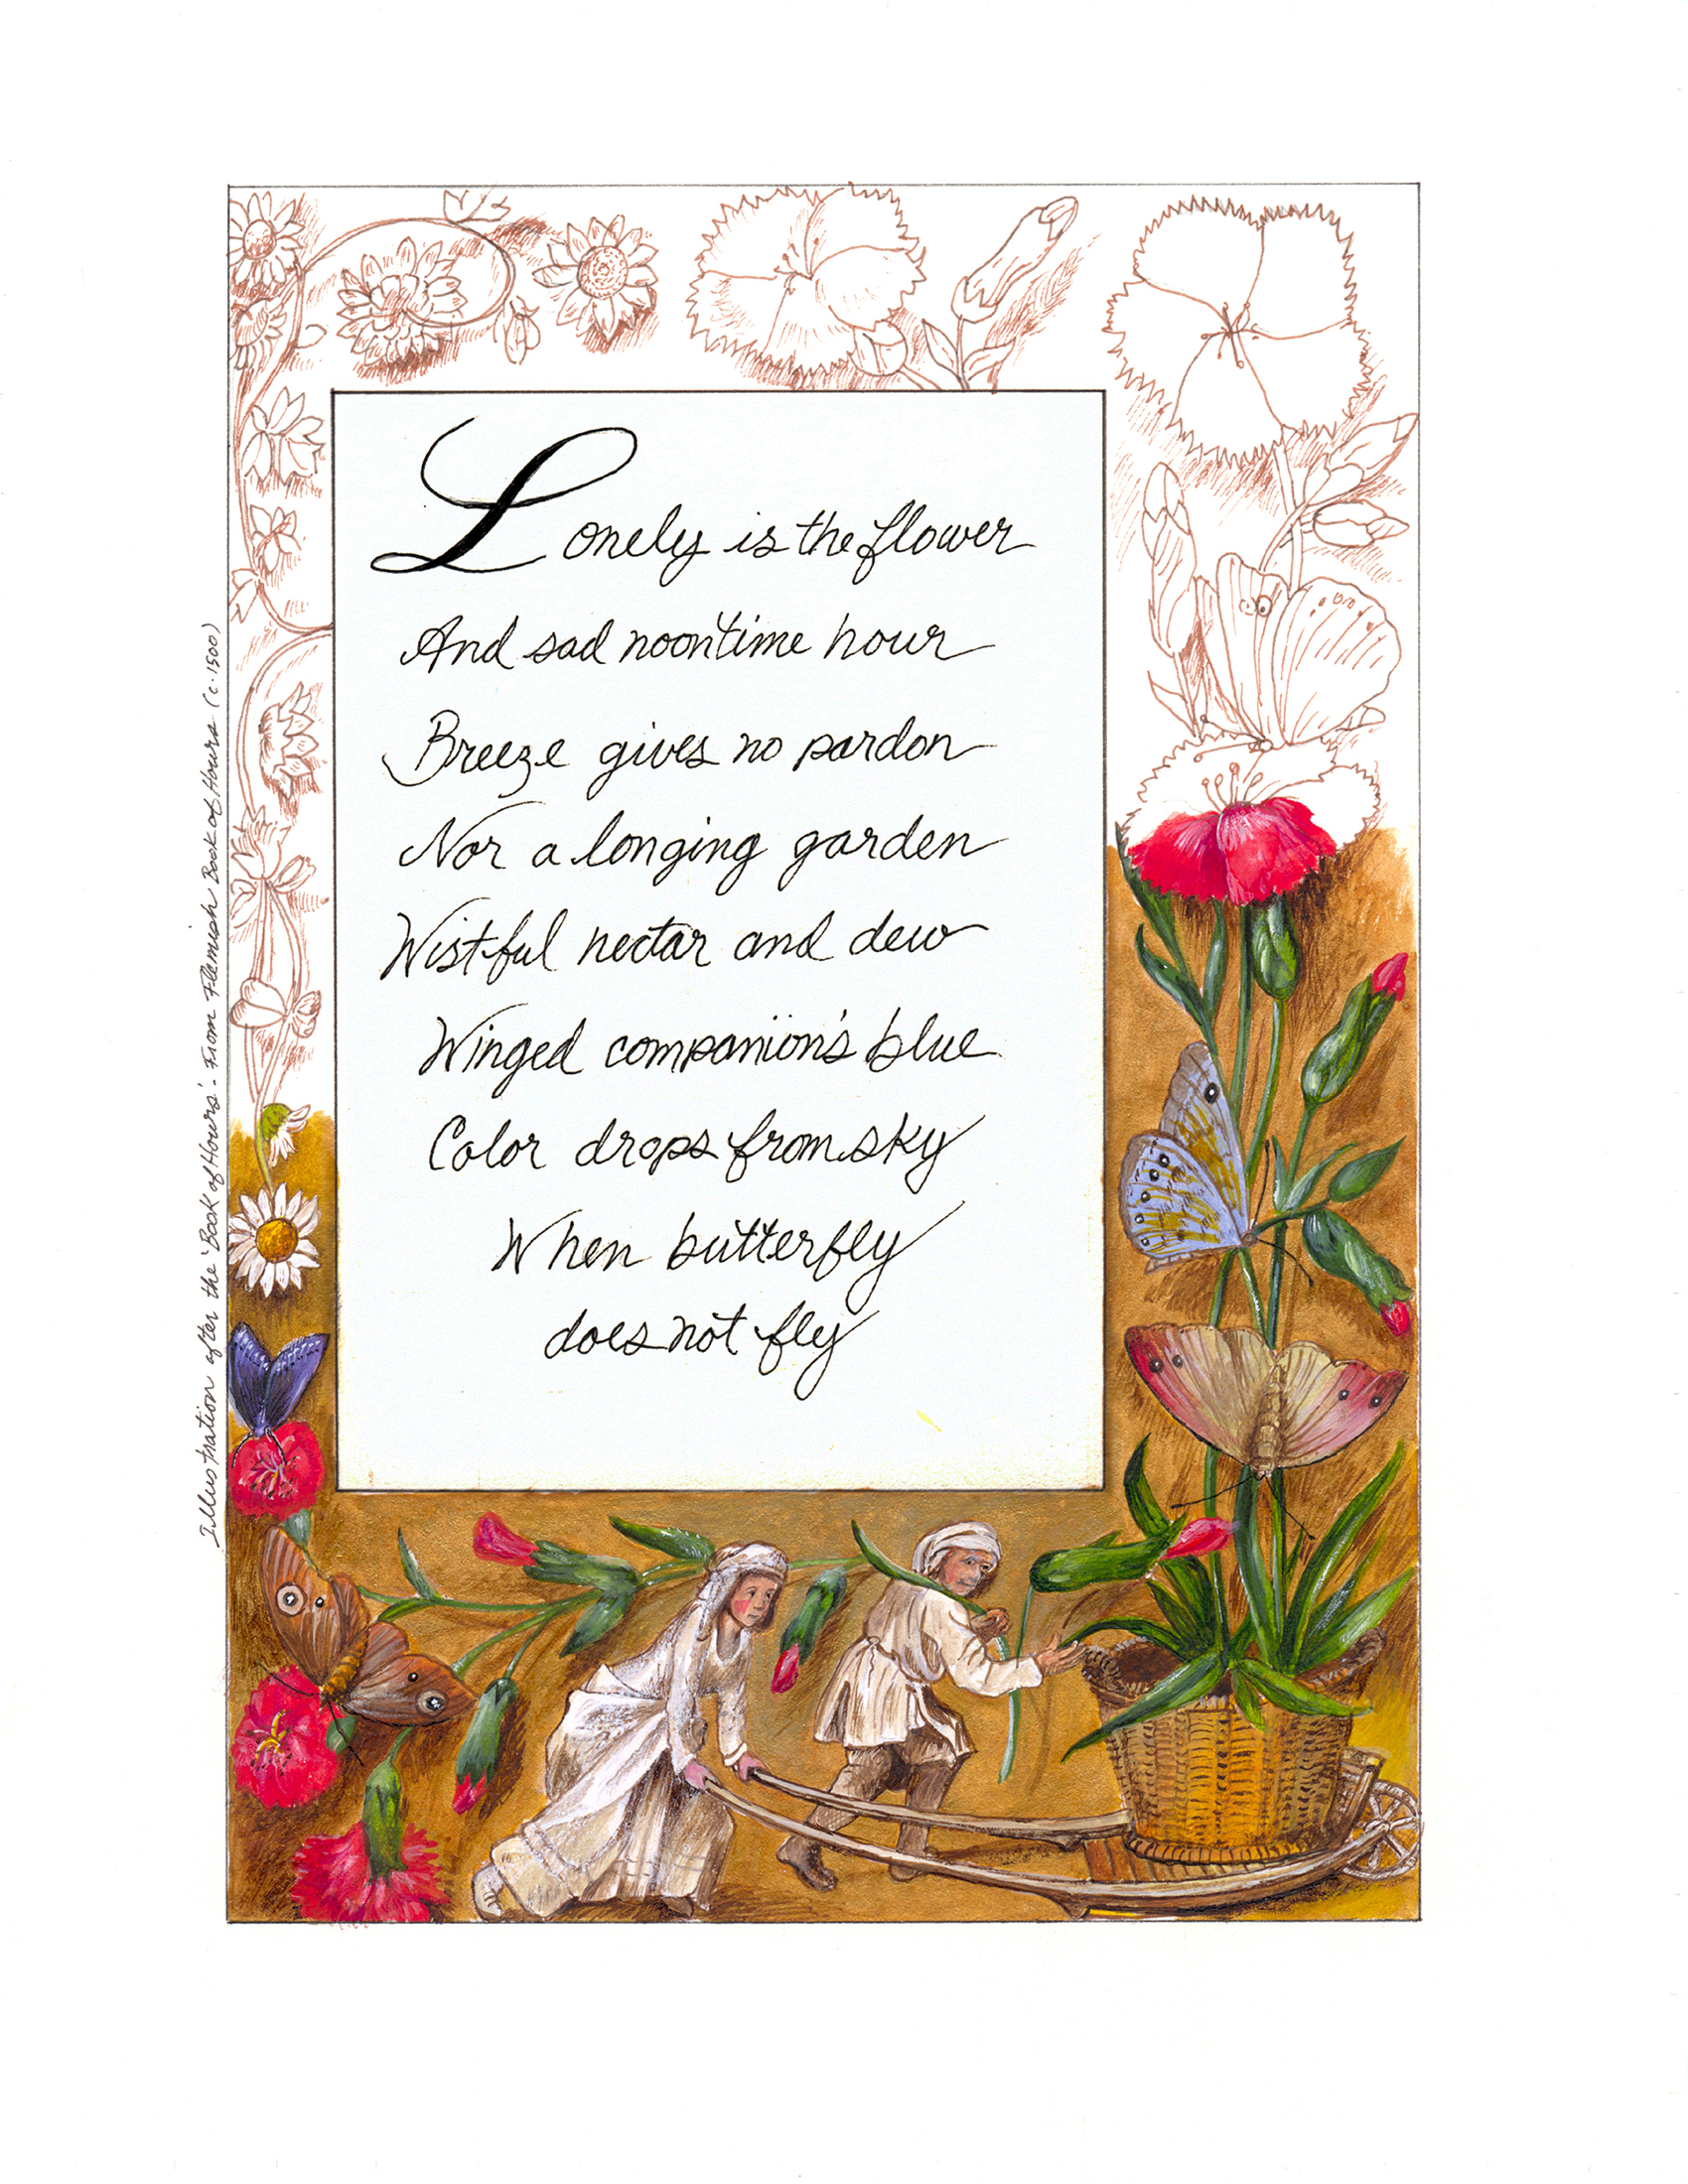 Lonely is the flower
And sad noontime hour
Breeze gives no pardon
Nor a longing garden
Wistful nectar and dew
Winged companion's blue
Color drops from sky
When butterfly
does not fly
Illustration after the 'Book of Hours'. From Flemish Book of Hours (c. 1500)